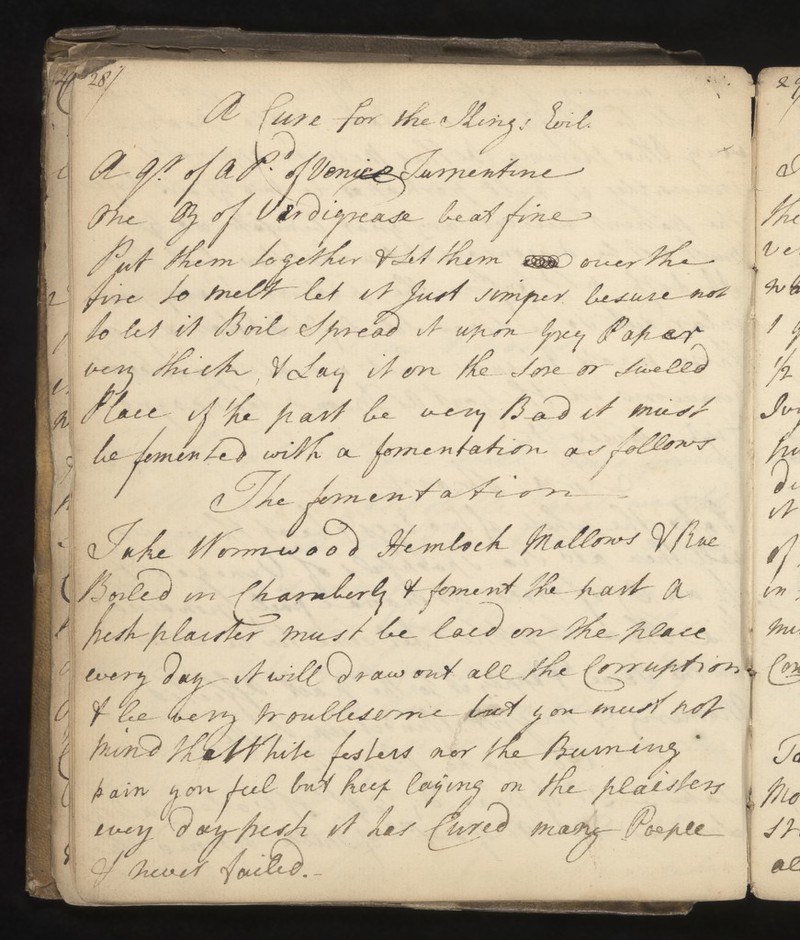 28
A Cure for the Kings Evil
A qr. of a Pd. of Venice Turnentine
One Oz of Verdigrease beat fine
Put them together & Set them over the
fire to melt let it Just simper besure not
to let it Boil Spread it upon Grey Paper
very thick, & Lay it on the Sore or Swelled
Place if the part be very Bad it must
be fomented with a fomentation as follows
The fomentation
Take Wormwood Hemlock Mallows & Rue
Boiled in Chamberly & foment the part A
fresh plaister must be laid on the place
every Day it will Draw out all the Corruption
& be very troublesome but you must not
mind the White festers nor the Burning
pain you feel but keep laying on the plaisters
every Day fresh it has Cured many People
& never failed.-